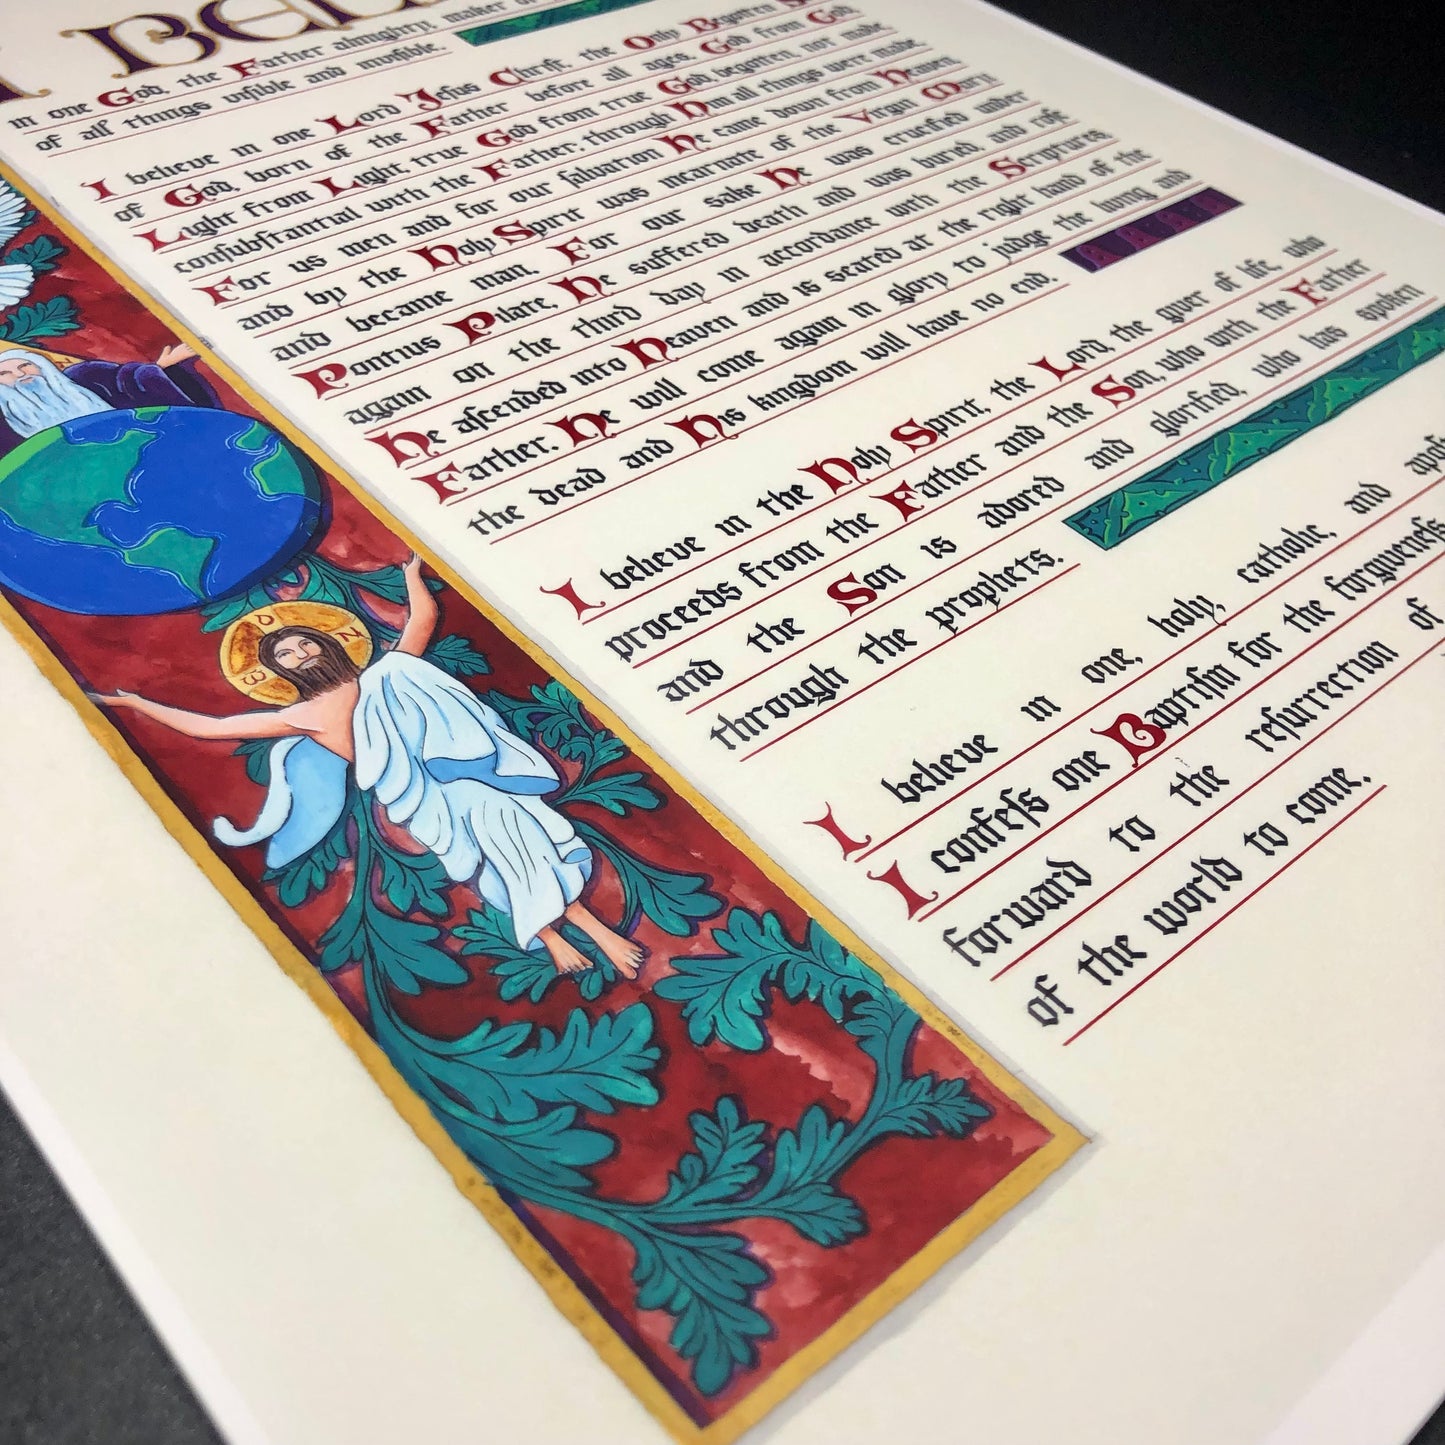 I BEL
in one God, the Father almighty, maker of
of all things visible and invisible.
I believe in one Lord Jesus Christ, the Only Begotten S
of God, born of the Father before all ages. God from God,
Light from Light, true God from true God, begotten, not made,
consubstantial with the Father; through Him all things were made.
For us men and for our salvation He came down from heaven,
and by the Holy Spirit was incarnate of the Virgin Mary
and became man. For our sake He was crucified under
Pontius Pilate, He suffered death and was buried, and rose
again on the third day in accordance with the Scriptures.
He ascended into heaven and is seated at the right hand of the
Father. He will come again in glory to judge the living and
the dead and His kingdom will have no end.
I believe in the Holy Spirit, the Lord, the giver of life, who
proceeds from the Father and the Son, who with the Father
and the Son is adored and glorified, who has spoken
through the prophets.
I believe in one, holy, catholic, and apos
I confess one Baptism for the forgiveness
forward to the resurrection of
of the world to come.